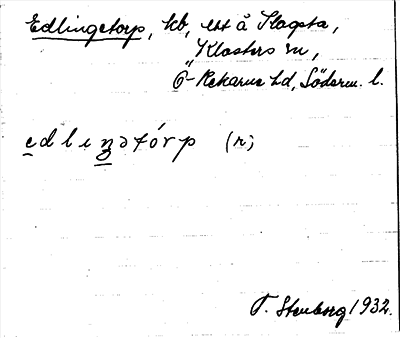 Edlingetorp, hb, ext å Slagsta,
Klosters sn,
Ö-Rekarne hd, Söderm. l.
edlenətórp (n)
T. Stenborg 1932.